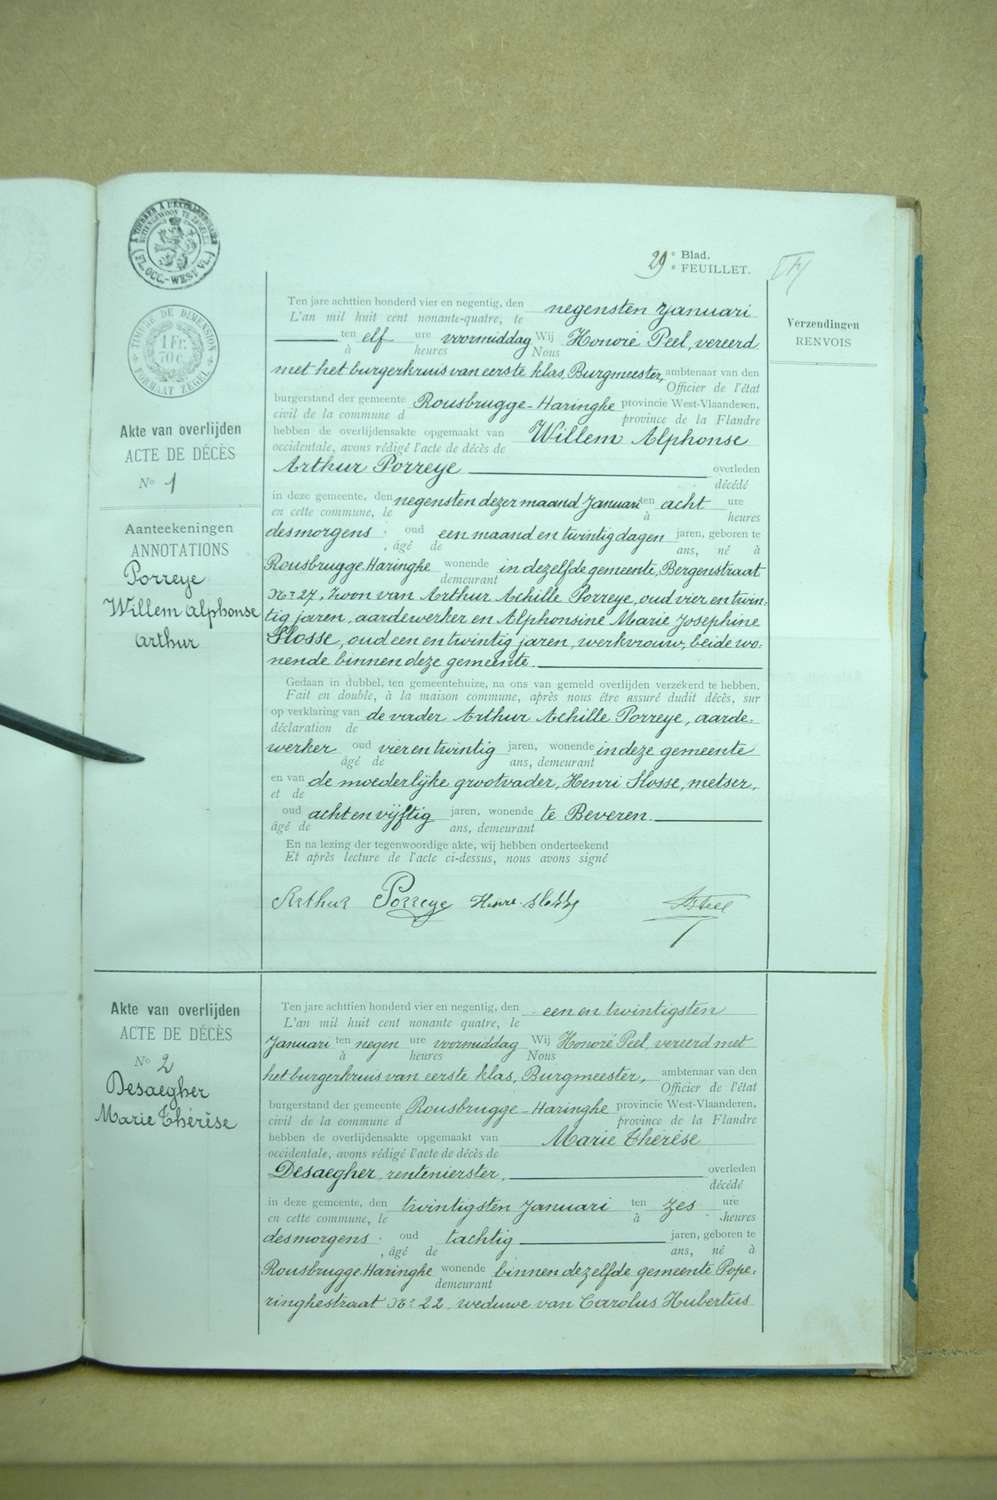 À TIMBRER À L'EXTRAORDINAIRE
BUITENGEWOON TE ZEGELEN
(FL. OCC.-WEST VL.)
29e Blad.
e FEUILLET.
TIMBRE DE DIMENSION
1 Fr.
70 c.
FORMAAT ZEGEL
Verzendingen
RENVOIS
Akte van overlijden
ACTE DE DÉCÈS
No 1
Aanteekeningen
ANNOTATIONS
Porreye
Willem Alphonse
Arthur
Ten jare achttien honderd vier en negentig, den negensten Januari
L'an mil huit cent nonante-quatre, le
ten elf ure voormiddag Wij Honoré Peel, vereerd
à heures Nous
met het burgerkruis van eerste klas, Burgmeester, ambtenaar van den
Officier de l'état
burgerstand der gemeente Rousbrugge-Haringhe provincie West-Vlaanderen,
civil de la commune d province de la Flandre
hebben de overlijdensakte opgemaakt van Willem Alphonse
occidentale, avons rédigé l'acte de décès de
Arthur Porreye overleden
décédé
in deze gemeente, den negensten dezer maand Januari ten acht ure
en cette commune, le à heures
desmorgens, oud een maand en twintig dagen jaren, geboren te
âgé de ans, né à
Rousbrugge-Haringhe wonende in dezelfde gemeente, Bergenstraat
demeurant
No 27, zoon van Arthur Achille Porreye, oud vier en twin-
tig jaren, aardewerker en Alphonsine Marie Josephine
Slosse, oud een en twintig jaren, werkvrouw, beide wo-
nende binnen deze gemeente.
Gedaan in dubbel, ten gemeentehuize, na ons van gemeld overlijden verzekerd te hebben,
Fait en double, à la maison commune, après nous être assuré dudit décès, sur
op verklaring van de vader Arthur Achille Porreye, aarde-
déclaration de
werker oud vier en twintig jaren, wonende in deze gemeente
âgé de ans, demeurant
en van de moederlijke grootvader, Henri Slosse, metser,
et de
oud acht en vijftig jaren, wonende te Beveren.
âgé de ans, demeurant
En na lezing der tegenwoordige akte, wij hebben onderteekend
Et après lecture de l'acte ci-dessus, nous avons signé
Arthur Porreye Henri Slosse HPeel
Akte van overlijden
ACTE DE DÉCÈS
No 2
Desaegher
Marie Thérèse
Ten jare achttien honderd vier en negentig, den een en twintigsten
L'an mil huit cent nonante quatre, le
Januari ten negen ure voormiddag Wij Honoré Peel, vereerd met
à heures Nous
het burgerkruis van eerste klas, Burgmeester, ambtenaar van den
Officier de l'état
burgerstand der gemeente Rousbrugge-Haringhe provincie West-Vlaanderen,
civil de la commune d province de la Flandre
hebben de overlijdensakte opgemaakt van Marie Thérèse
occidentale, avons rédigé l'acte de décès de
Desaegher, rentenierster, overleden
décédé
in deze gemeente, den twintigsten Januari ten zes ure
en cette commune, le à heures
desmorgens, oud tachtig jaren, geboren te
âgé de ans, né à
Rousbrugge-Haringhe wonende binnen dezelfde gemeente Pope-
demeurant
ringhestraat No 22, weduwe van Carolus Hubertus